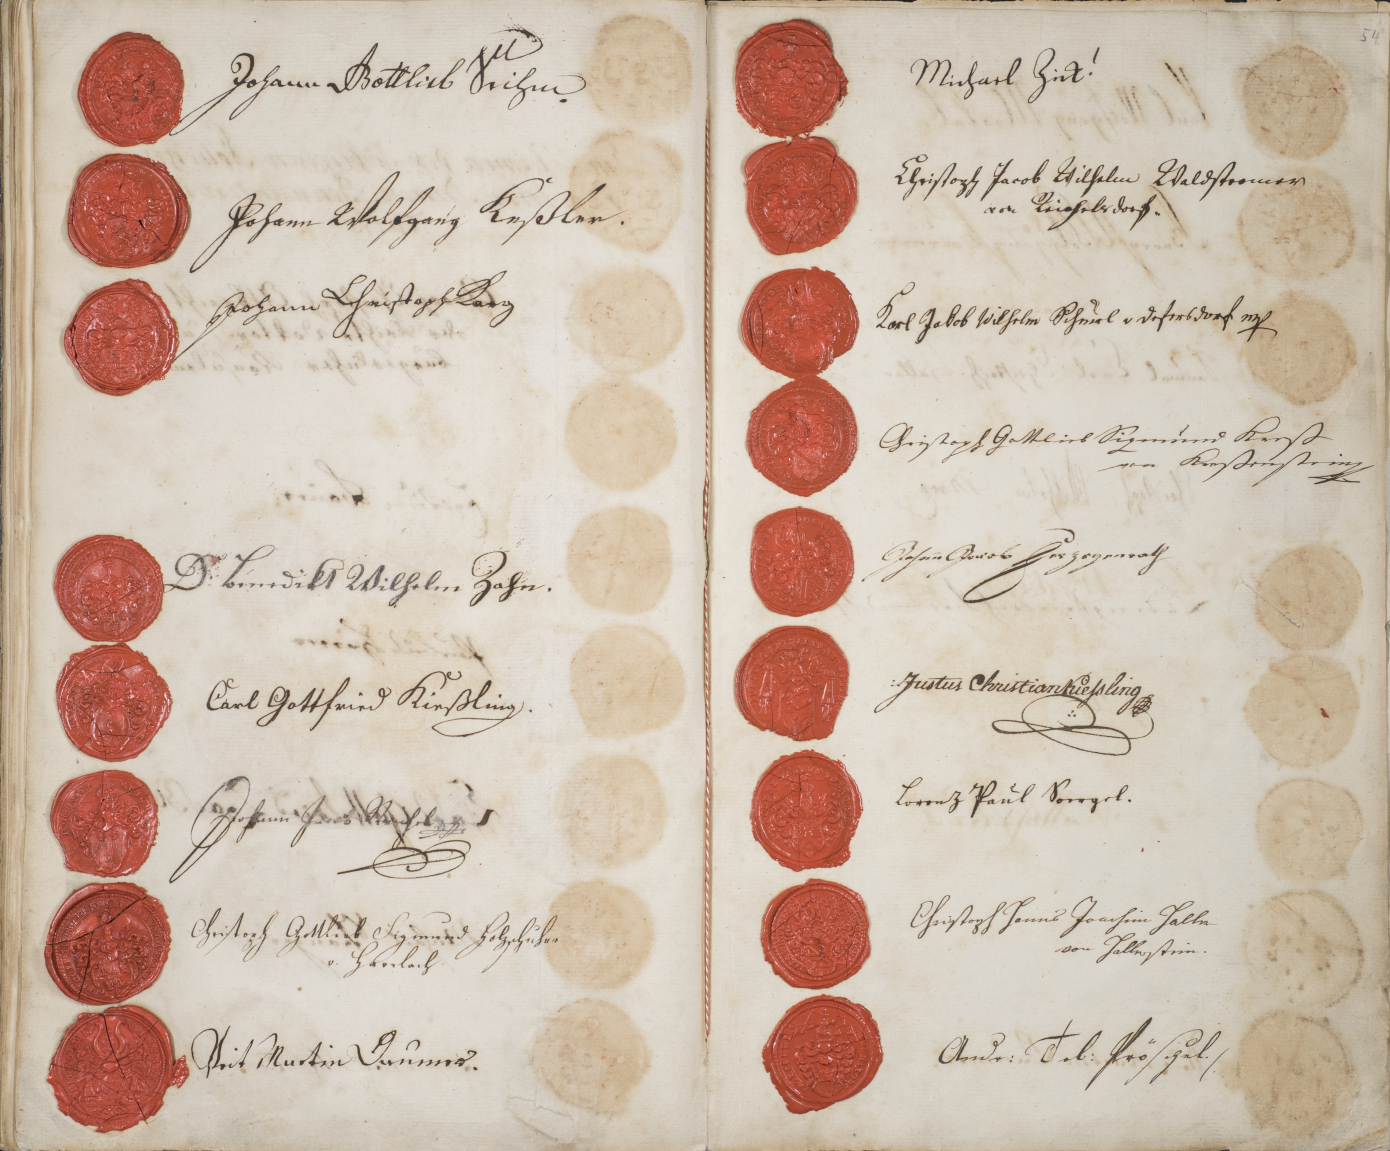 Johann Gottlieb
Johann Wolfgang Keßler.
Johann Christoph Karg
D. Benedikt Wilhelm Zahn.
Carl Gottfried Kießling.
Johann Jacob
Christoph Gottlieb Sigmund Holzschuher
v. Harrlach
Veit Martin Daumer.
54
Michael
Christoph Jacob Wilhelm Waldstromer
von Reichelsdorf.
Karl Jakob Wilhelm Scheürl v defersdorf
Christoph Gottlieb Sigmünd Kreß
von Kreßenstein
Johann Jacob Herzogenrath
Justus Christian Kiessling
Lorenz Paul Soergel.
Christoph Hanns Joachim Haller
von Hallerstein.
Andr: Tob: Pröschel.